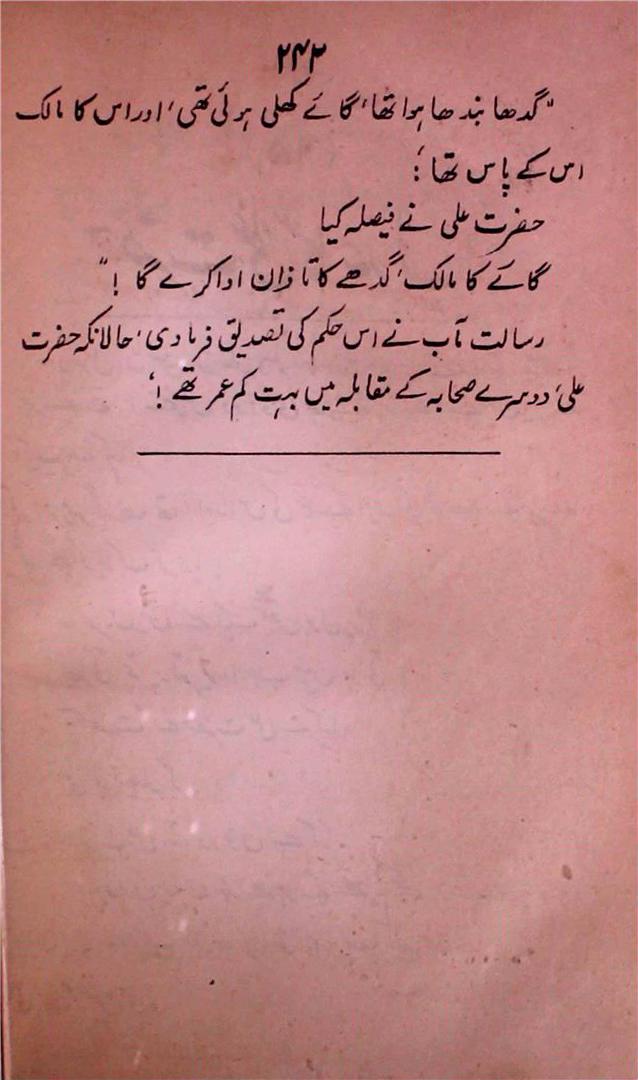 ۲۴۲
"گدھا بندھا ہوا تھا، گائے کھلی ہوئی تھی، اور اس کا مالک
اس کے پاس تھا؛
حضرت علی نے فیصلہ کیا
گائے کا مالک، گدھے کا تاوان ادا کرے گا !"
رسالت مآب نے اس حکم کی تصدیق فرما دی، حالانکہ حضرت
علی، دوسرے صحابہ کے مقابلہ میں بہت کم عمر تھے !،